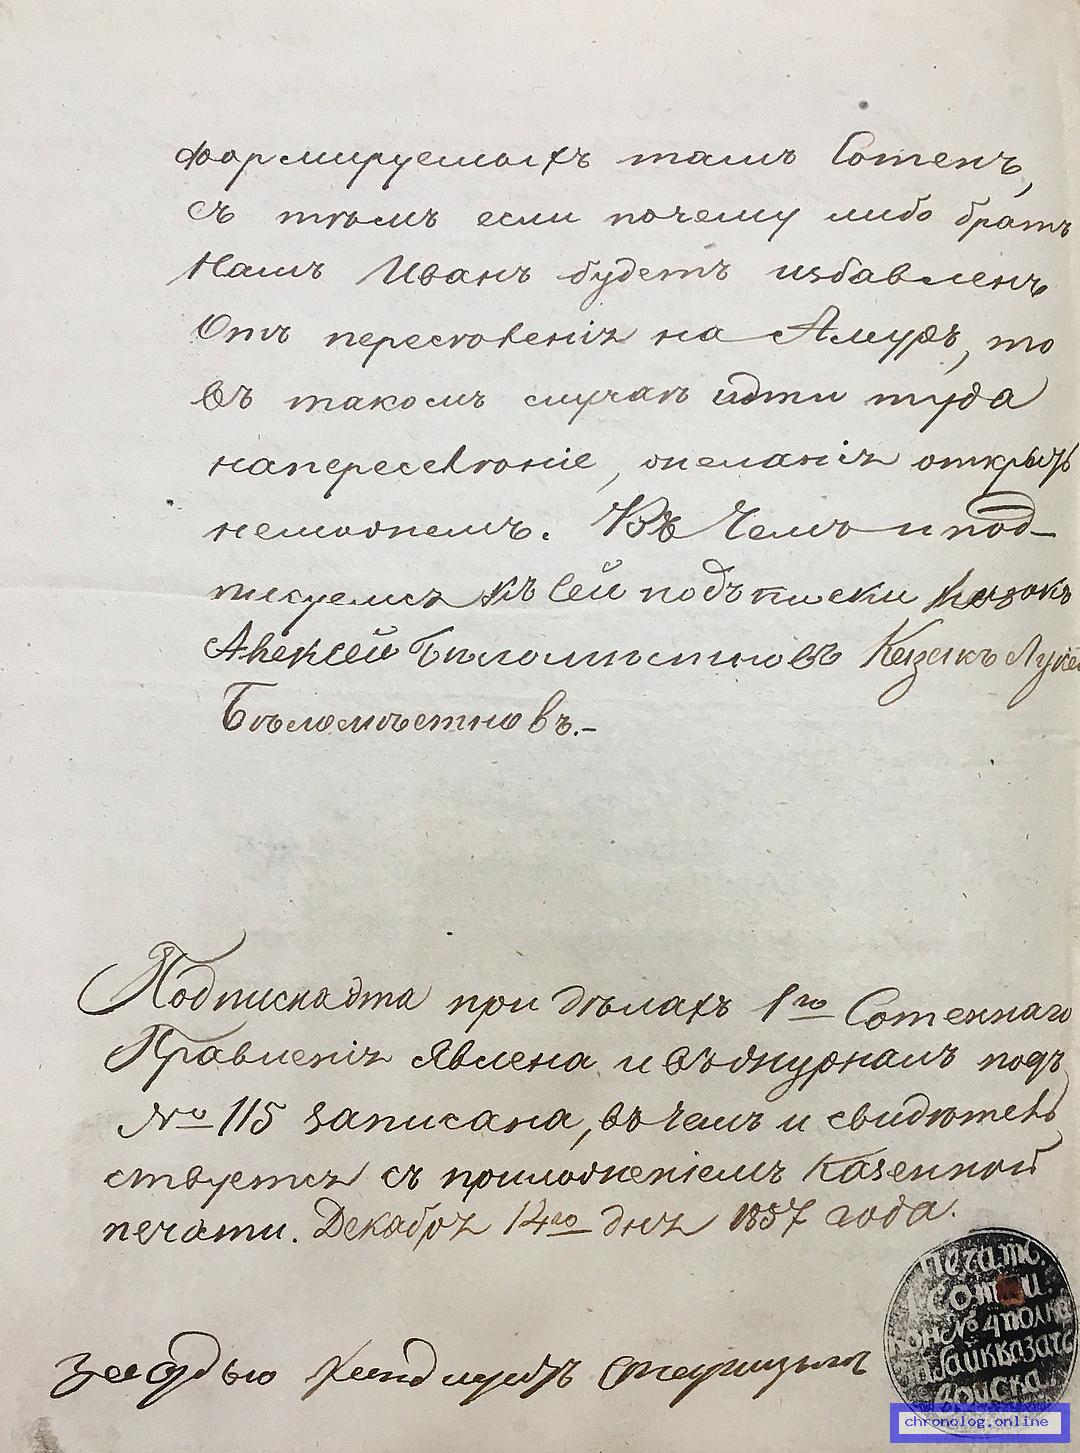 формируемыхъ тамъ Сотенъ,
съ тѣмъ если почему либо братъ
Нашъ Иванъ будетъ избавленъ
Отъ переселенія на Амуръ, то
въ такомъ случаѣ идти туда
напереселеніе, желанія открыть
неможемъ. Въ Чемъ и под-
писуемся къ сей подъписки казакъ
Алексей Беломестновъ Казакъ Лукей
Бѣломѣстновъ.-
Подписка эта при дѣлахъ 1го Сотеннаго
Правленія Явлена и въ журналъ подъ
№ 115 записана, въ чемъ и свидѣтель
ствуется съ приложеніемъ казенной
печати. Декабря 14го дня 1857 года.
Печать.
1 Сотни.
№ 4 полка
Забайк казач
Войска
chronolog.online